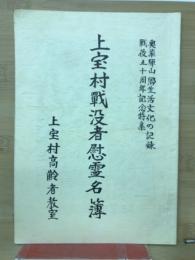 奥美濃山郷生活文化の記録
戦後五十周年記念特集
上宝村戦没者慰霊名簿
上宝村高齢者教室